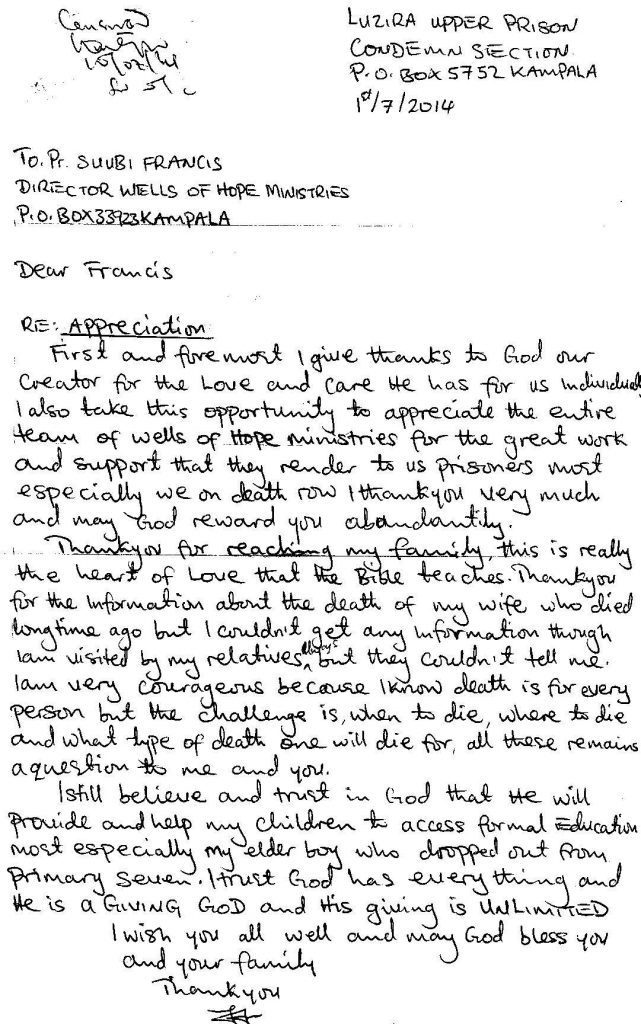 Censored
LUZIRA UPPER PRISON
CONDEMN SECTION
P.O. BOX 5752 KAMPALA
1st/7/2014
To. Pr. SUUBI FRANCIS
DIRECTOR WELLS OF HOPE MINISTRIES
P.O. BOX 33923 KAMPALA
Dear Francis
RE: APPreciation
First and foremost I give thanks to God our
Creator for the Love and Care He has for us individual
I also take this opportunity to appreciate the entire
team of wells of Hope ministries for the great work
and support that they render to us prisoners most
especially we on death row I thankyou very much
and may God reward you abandantily.
Thankyou for reaching my family, this is really
the heart of Love that the Bible teaches. Thankyou
for the Information about the death of my wife who died
longtime ago but I couldn't get any Information though
Iam visited by my relatives always but they couldn't tell me.
Iam very courageous because I know death is for every
person but the challenge is, when to die, where to die
and what type of death one will die for, all these remains
a question to me and you.
I still believe and trust in God that He will
Provide and help my children to access formal Education
most especially my elder boy who dropped out from
Primary Seven. I trust God has every thing and
He is a GIVING GOD and His giving is UNLIMITED
I wish you all well and may God bless you
and your family
Thankyou